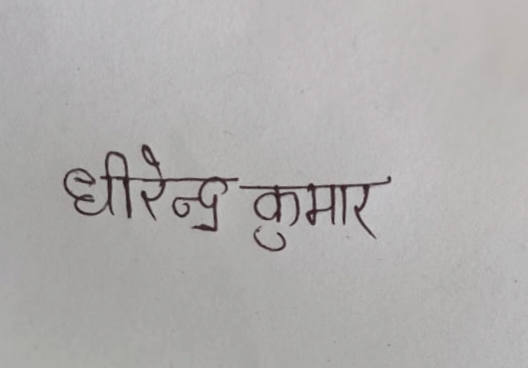 धीरेन्द्र कुमार